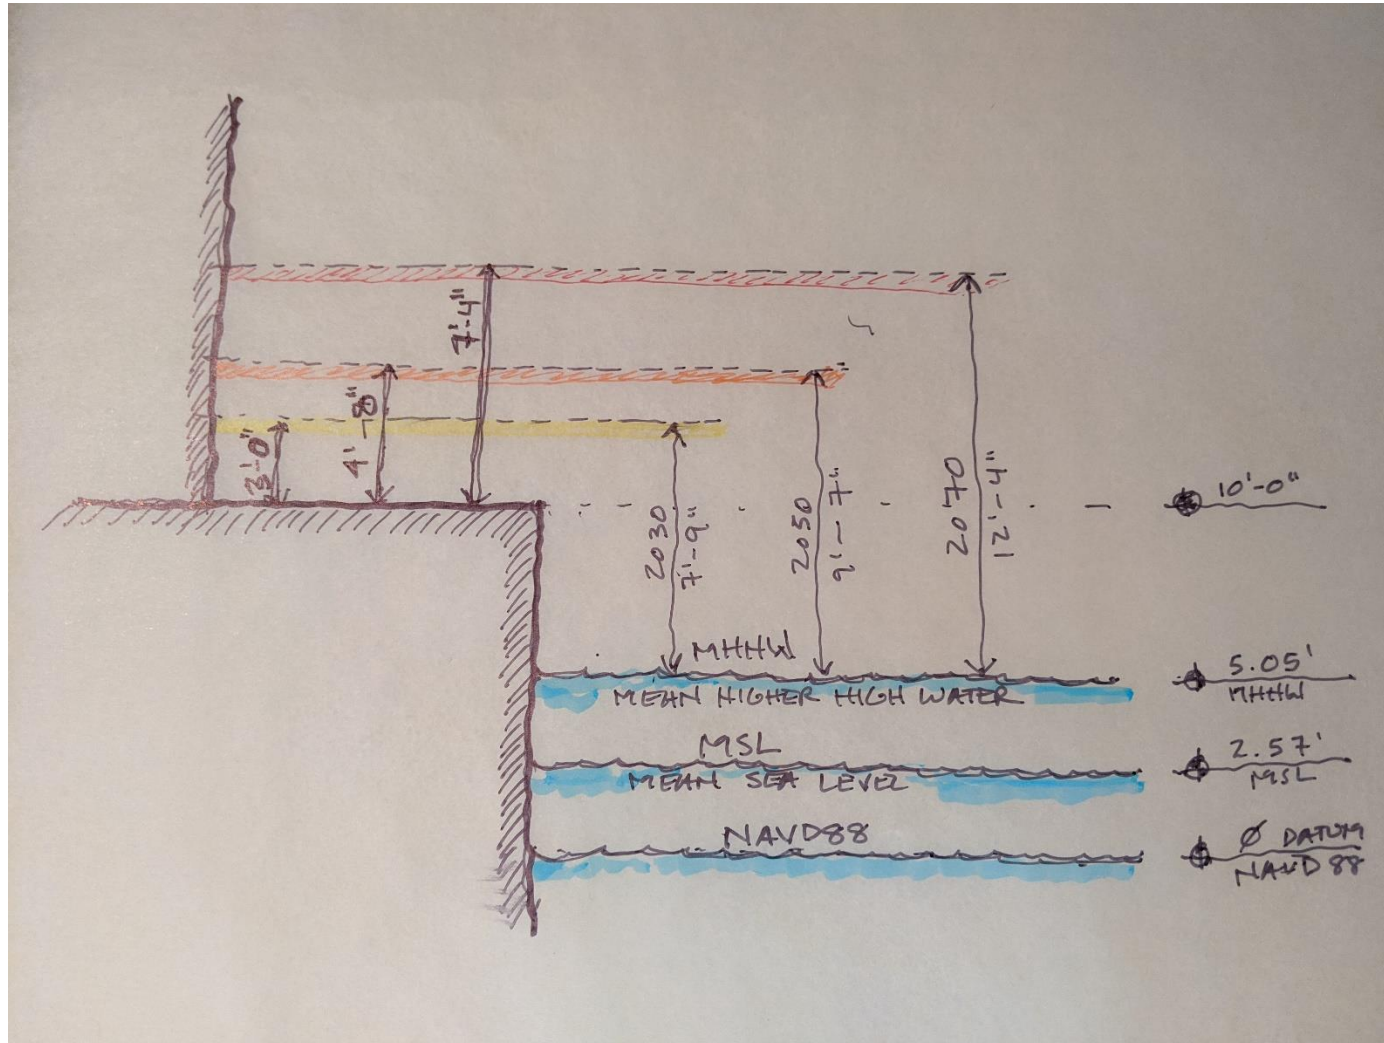 7'-4"
4'-8"
3'-0"
2030
7'-9"
2050
9'-7"
2070
12'-4"
10'-0"
MHHW
MEAN HIGHER HIGH WATER
5.05'
MHHW
MSL
MEAN SEA LEVEL
2.57'
MSL
NAVD88
Ø DATUM
NAVD 88